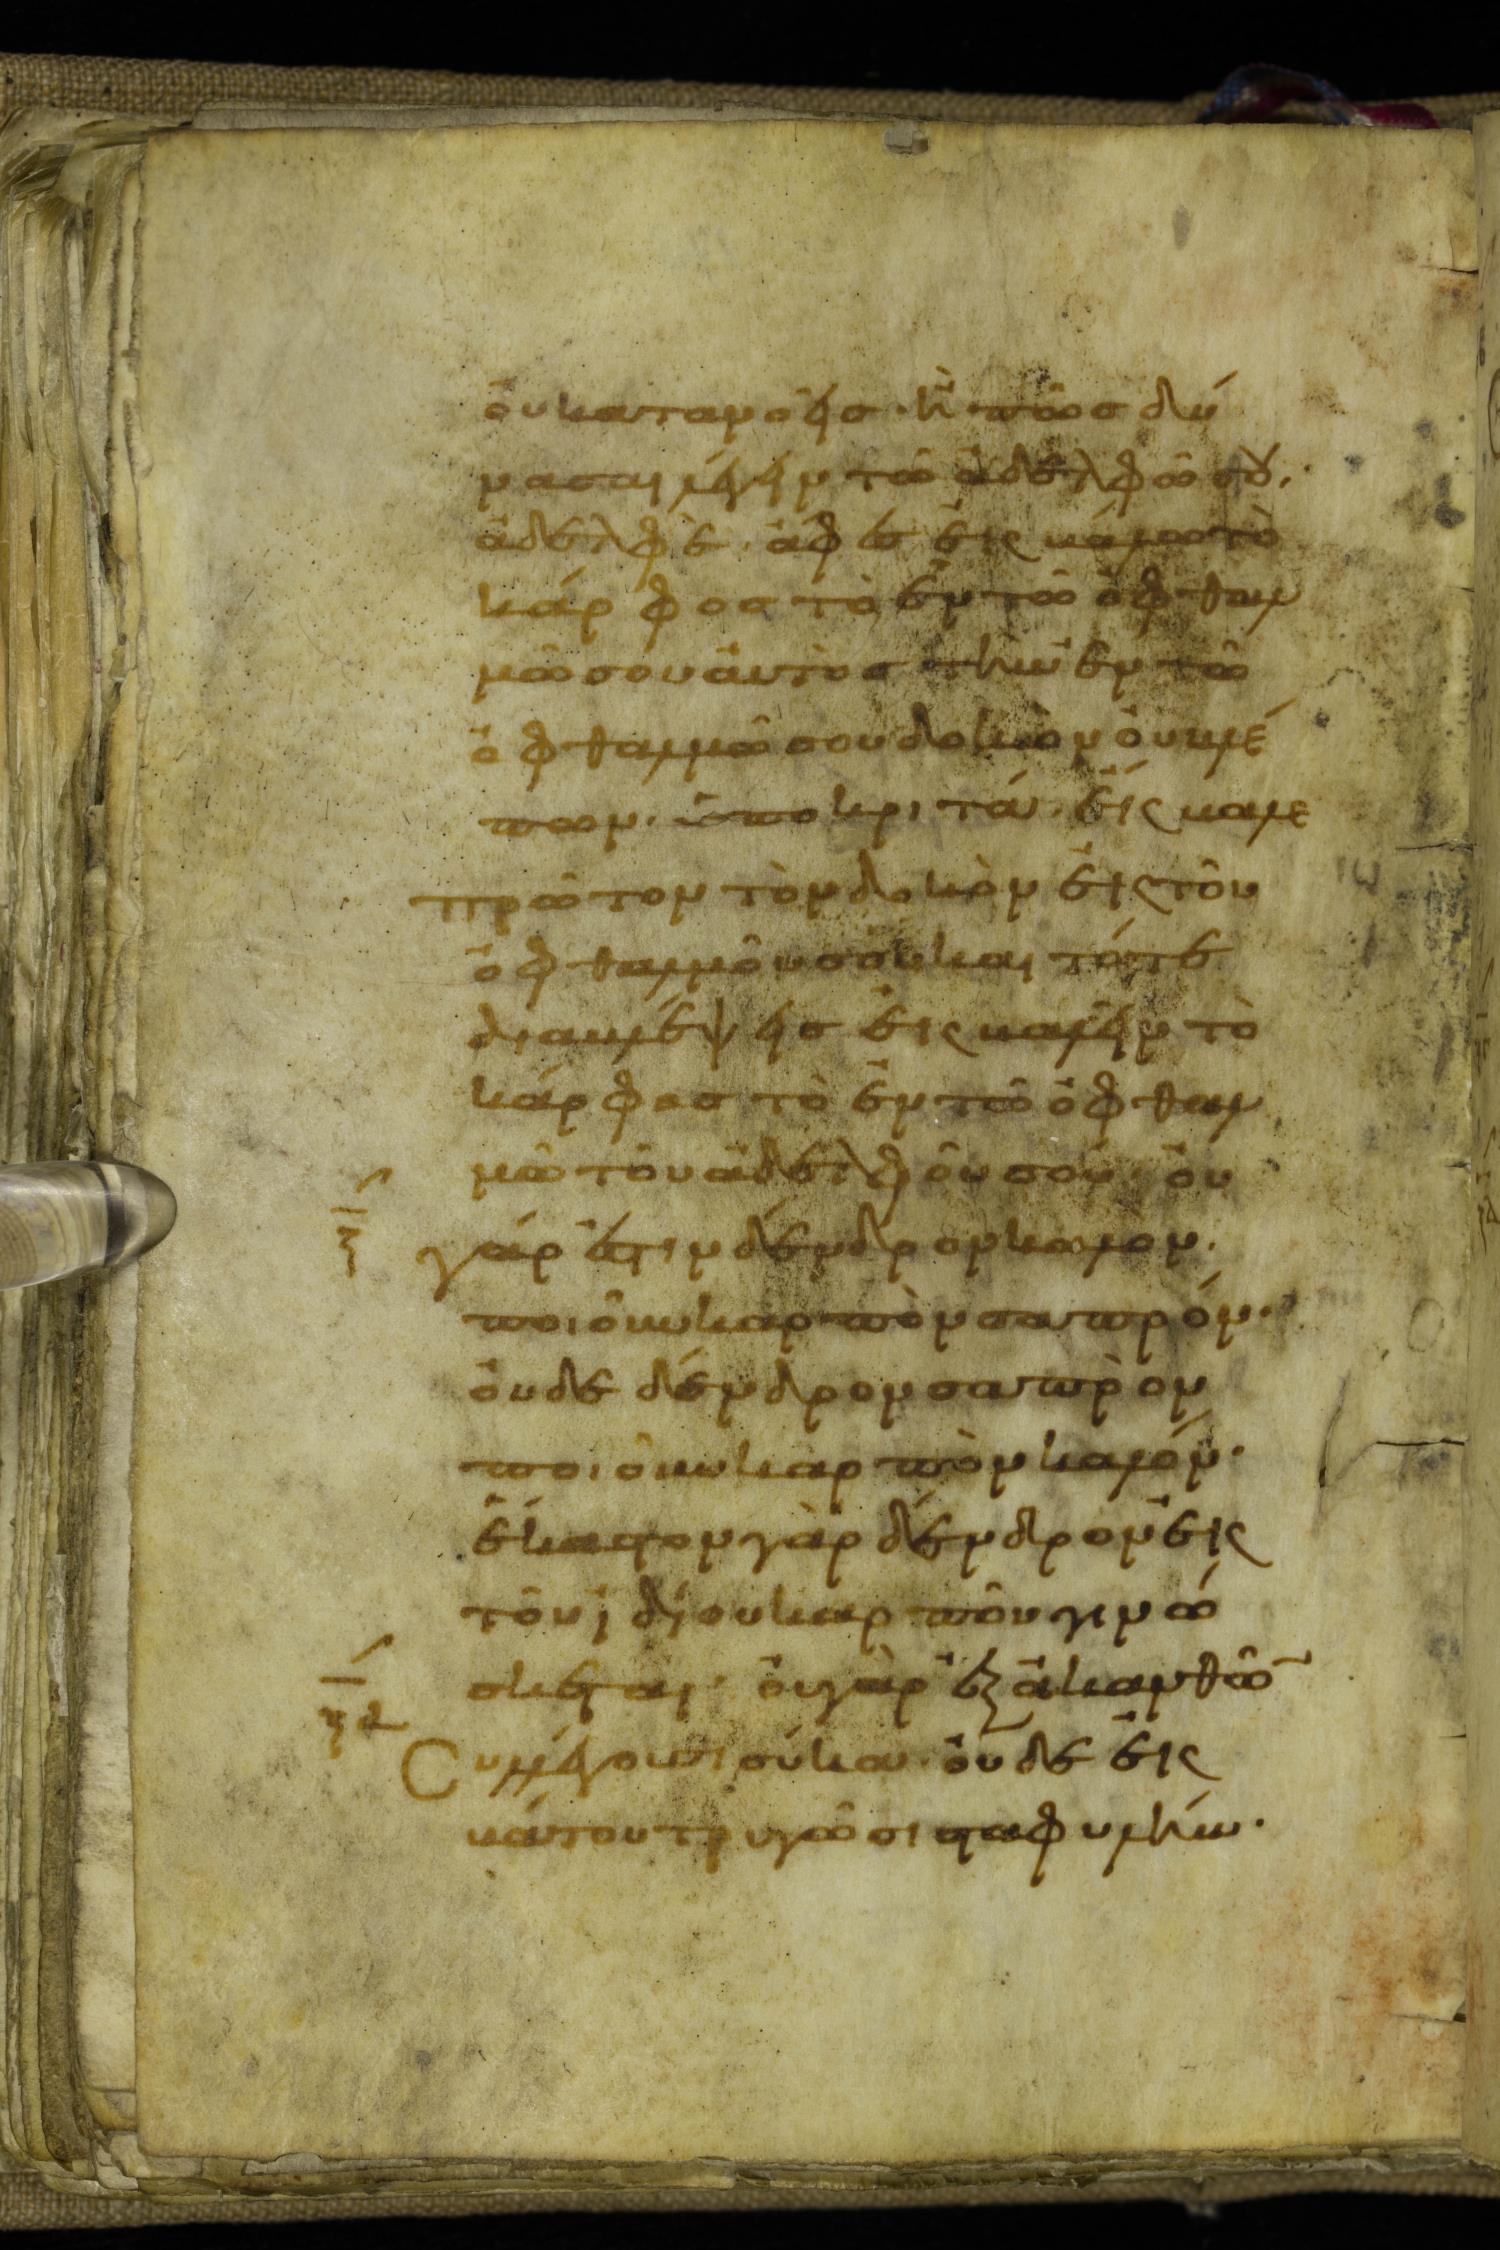 οὐ κατανοεῖς· ἢ πῶς δύ
νασαι λέγειν τῶ ἀδελφῶ σου·
ἀδελφὲ· ἄφες ἐκβάλω τὸ
κάρφος τὸ ἐν τῶ ὀφθαλ
μῶ σου αὐτὸς τὴν ἐν τῶ
ὀφθαλμῶ σου δοκὸν οὐ βλέ
πων· ὑποκριτά· ἔκβαλε
πρῶτον τὸν δοκὸν ἐκ τοῦ
ὀφθαλμοῦ σου και τότε
διαβλέψεις ἐκβαλεῖν τὸ
κάρφος τὸ ἐν τῶ ὀφθαλ
μῶ τοῦ ἀδελφοῦ σου· οὐ
ξ γάρ ἐστιν δένδρον καλον·
ποιοῦν καρπὸν σαπρόν·
οὐδε δένδρον σαπρὸν
ποιοῦν καρπὸν καλόν·
ἕκαστον γὰρ δένδρον ἐκ
τοῦ ἰδίου καρποῦ γινώ
σκεται· οὐ γὰρ ἐξ ἀκανθῶ̄
ξα Συλλέγουσι σύκα· οὐδε ἐκ
βάτου τρυγῶσι σταφυλήν·